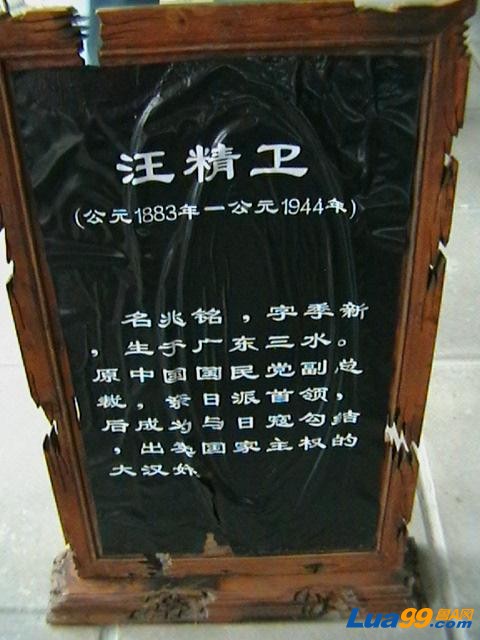 汪精卫
(公元1883年－公元1944年)
名兆铭，字季新
，生于广东三水。
原中国国民党副总
裁，亲日派首领，
后成为与日寇勾结
，出卖国家主权的
大汉奸
Lua99.com